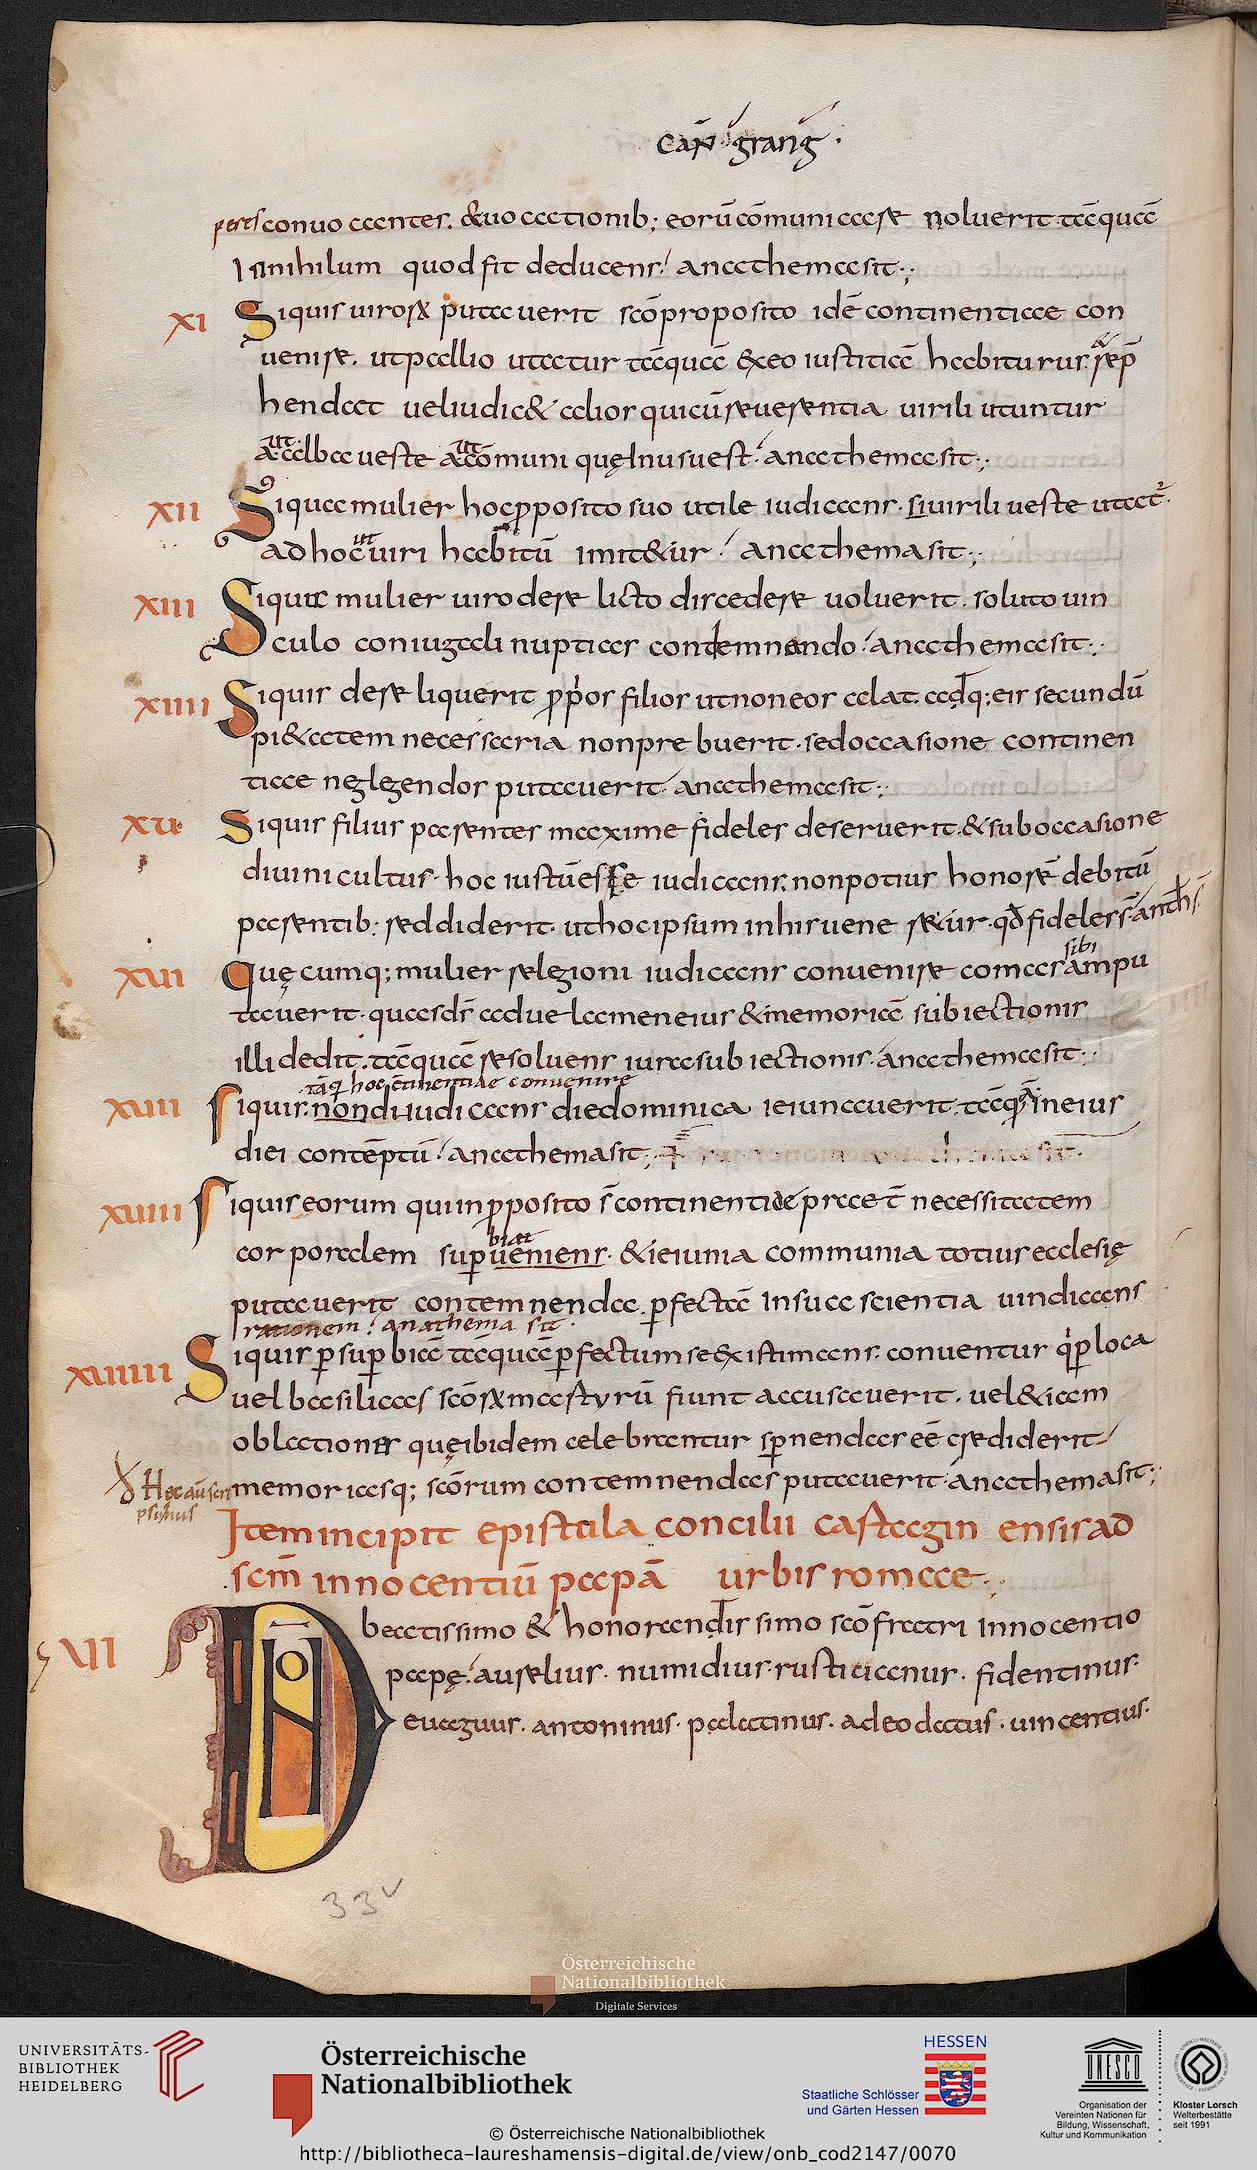 can̄ grang̅
pares convocantes. & vocationib; eorū cōmunicare noluerit tāquā
in nihilum quod fit deducens. anathema sit;
XI Siquis virorū putaverit scō proposito idē continentiae con
venire. ut pallio utatur tāquā & ex eo iustitiā habiturus. rep̄
hendat vel iudic& alios qui cū reverentia virili utuntur
aut alba veste aut cōmuni quę In usu est. anathema sit;
XII Siqua mulier hoc pposito suo utile iudicans. si virili veste utat̄.
ad hoc ut viri habitū imit&ur. anathema sit;
XIII Siqua mulier viro dere licto discedere voluerit. soluto vin
culo coniugali nuptias contemnendo. anathema sit;
XIIII Siquis dere liquerit pprios filios ut non eos alat. & qd; eis secundū
pi&atem necessaria non prebuerit. sed occasione continen
tiae neglegendos putaverit. anathema sit;
XV Siquis filius parentes maxime fideles deseruerit. & sub occasione
divini cultus. hoc iustū esse iudicans. non potius honorē debitū
parentib; reddiderit. ut hoc ipsum in his vene re&ur. qđ fideles s̄ anath s̄
XVI Quęcumq; mulier religioni iudicans convenire comas sibi ampu
taverit. quas d̄s ad velamen eius & memoriā subiectionis
illi dedit. tāquā resolvens iura subiectionis. anathema sit;
tāq̄ hoc c̄tinentiae convenire
XVII Siquis non d̄i iudicans die dominica ieiunaverit. tāqā in eius
diei contēptū. anathema sit;
XVIII Siquis eorum qui in pposito s̄ continentiae praeter necessitatem
corporalem superveniens. & ieiunia communia totius ecclesię
putaverit contemnenda. pfectā In sua scientia vindicans
rationem. anathema sit.
XVIIII Siquis p superbiā tāquā pfectum se existimans. conventus q̄ p loca
vel basilicas scōrū martyrū fiunt accusaverit. vel & iam
oblationes quę ibidem celebrantur spernendas eē crediderit
memoriasq; scōrum contemnendas putaverit. anathema sit;
Haec aū scri
psimus
Item incipit epistula concilii castaginensis ad
scm̄ innocentiū papā urbis romae.
VII DOMINO beatissimo & honorandissimo scō fratri Innocentio
papę. aurelius. numidius. rusticianus. fidentinus.
evagrius. antoninus. palatinus. adeodatus. vincentius.
33v
Österreichische
Nationalbibliothek
Digitale Services
UNIVERSITÄTS-
BIBLIOTHEK
HEIDELBERG
Österreichische
Nationalbibliothek
HESSEN
Staatliche Schlösser
und Gärten Hessen
UNESCO
Organisation der
Vereinten Nationen für
Bildung, Wissenschaft,
Kultur und Kommunikation
Kloster Lorsch
Welterbestätte
seit 1991
© Österreichische Nationalbibliothek
http://bibliotheca-laureshamensis-digital.de/view/onb_cod2147/0070